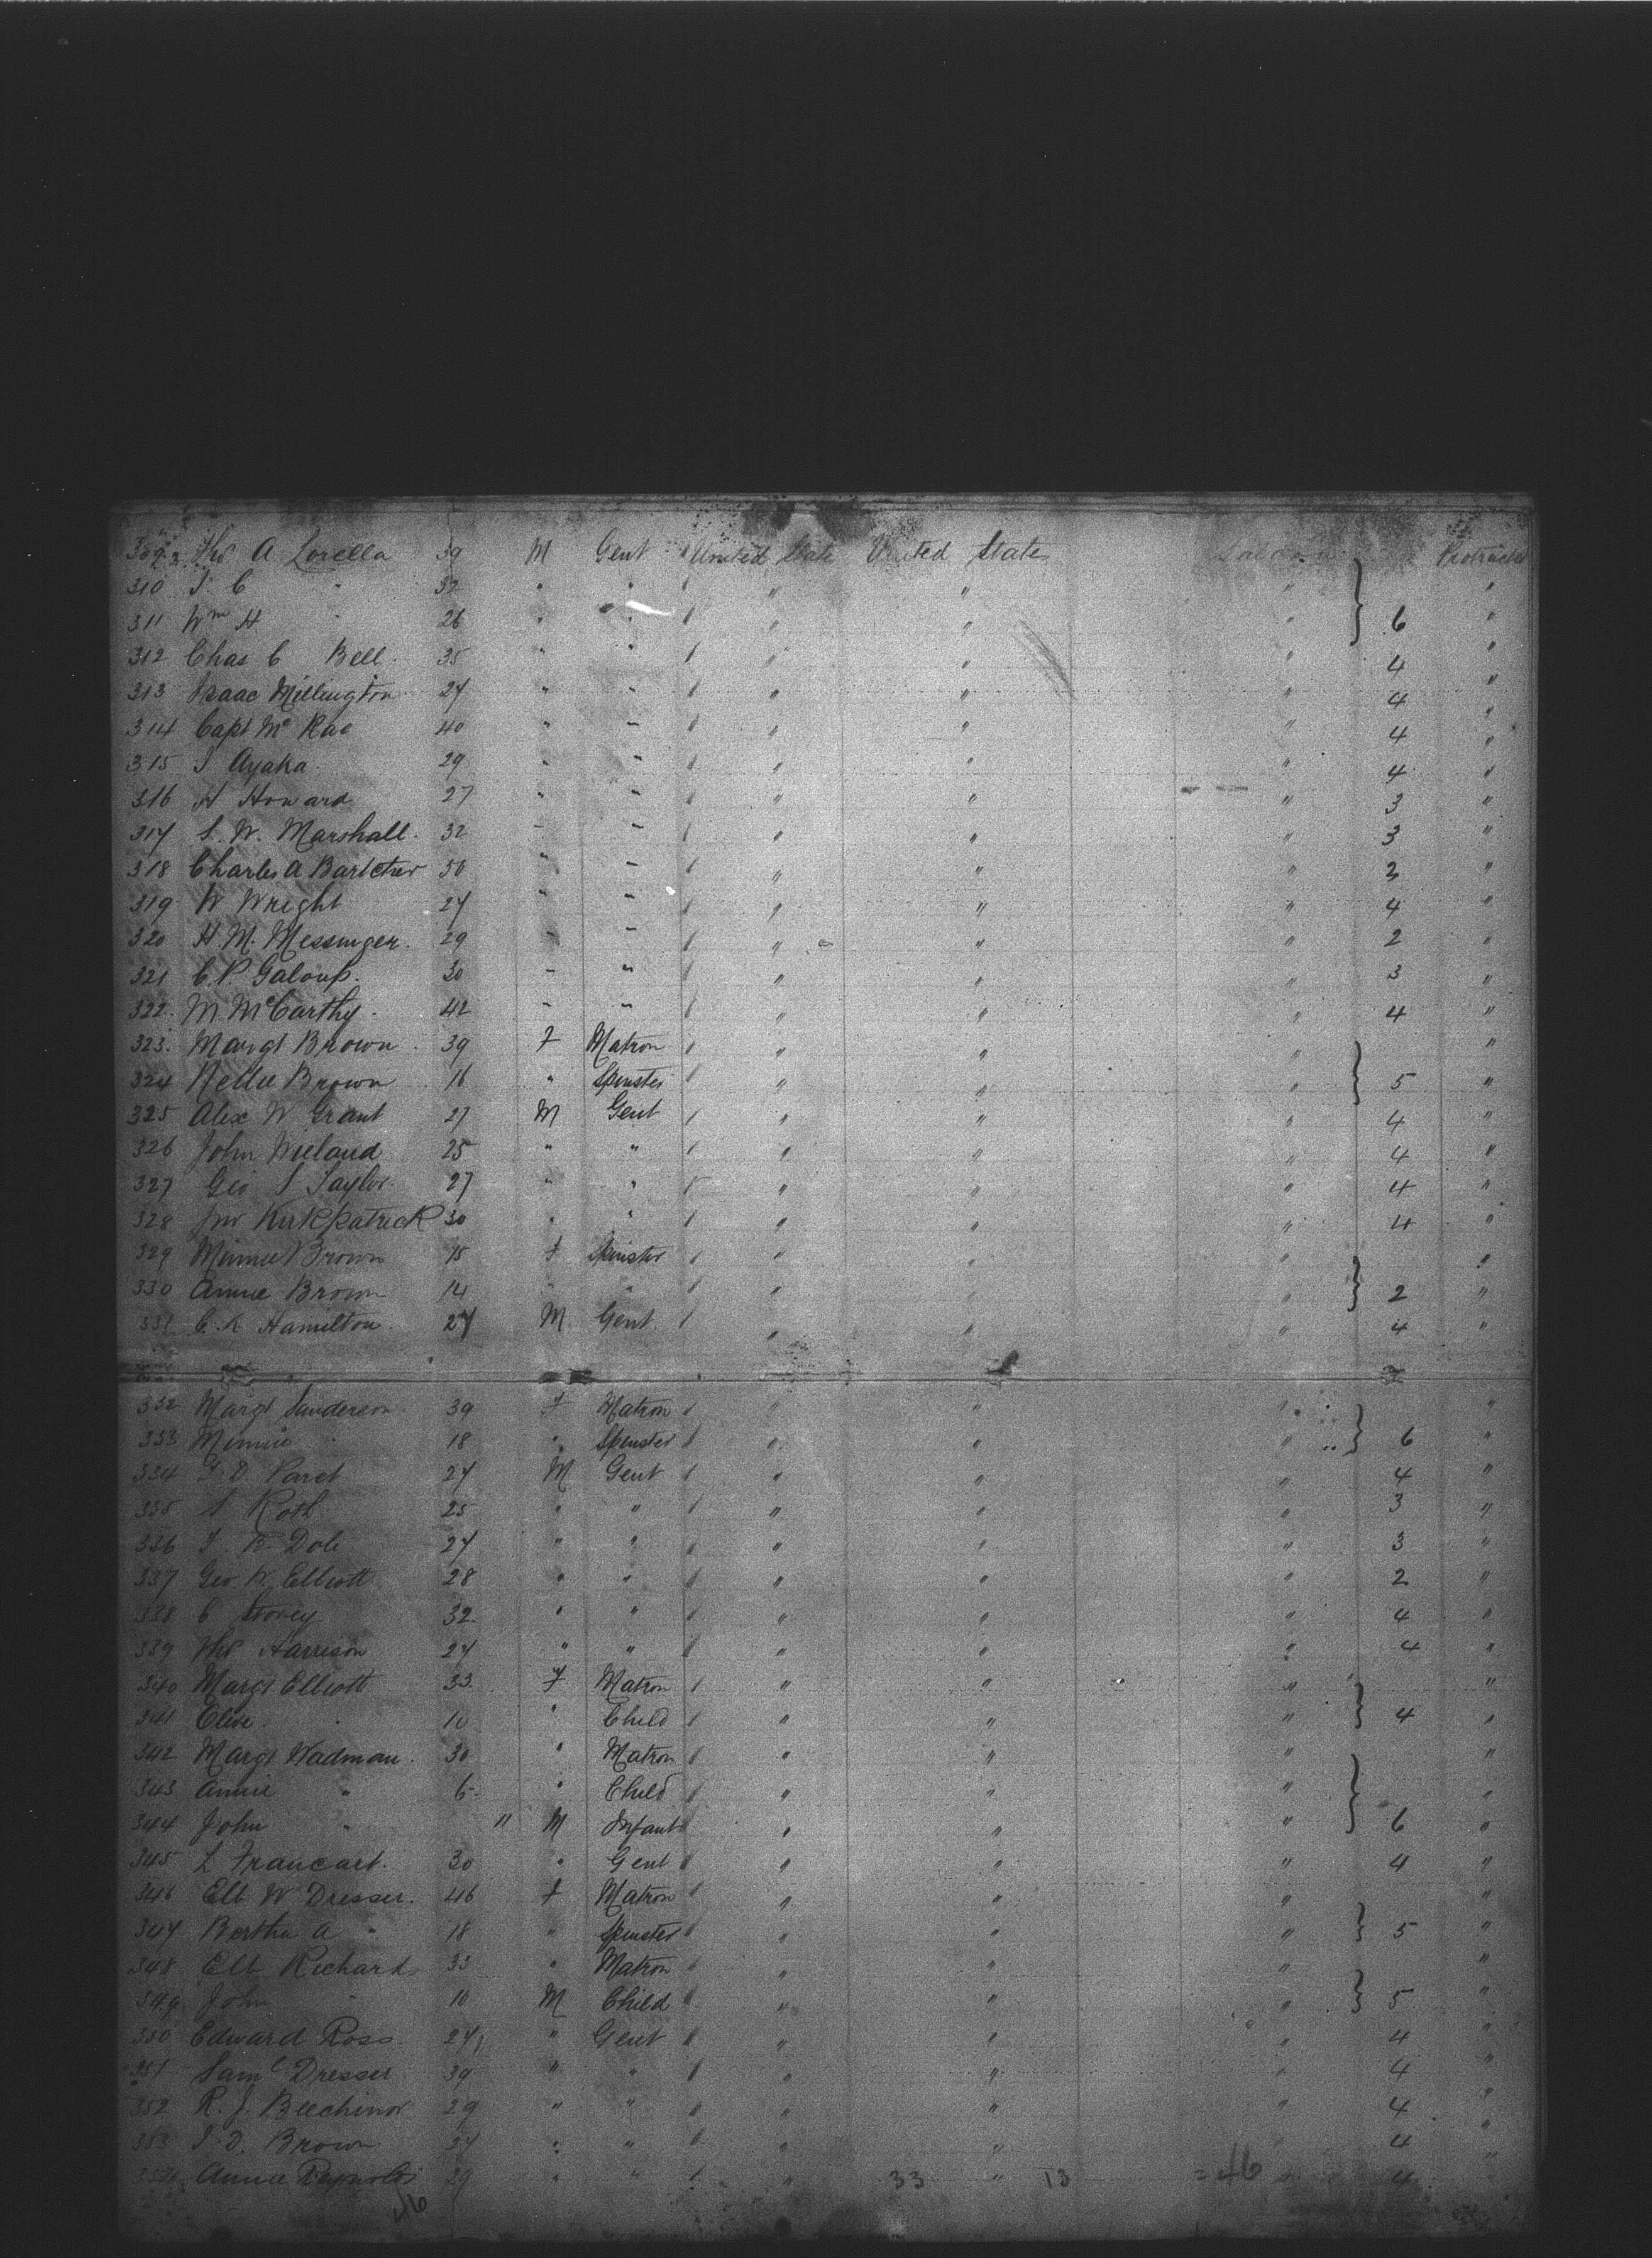 309 Thos A Lorella 39 M Gent United State United States Saloon Protracted
310 J. C " 32 " " " " " "
311 Wm H " 26 " " " " " 6 "
312 Chas C Bell 35 " " " " " 4 "
313 Isaac Millington 27 " " " " " 4 "
314 Capt Mc Rae 40 " " " " " 4 "
315 J Ayaka 29 " " " " " 4 "
316 H Howard 27 " " " " " 3 "
317 S. W. Marshall 32 " " " " " 3 "
318 Charles A 50 " " " " " "
319 W Wright 27 " " " " " 4 "
320 H. M. Messinger 29 " " " " " 2 "
321 C. P. Galoup 30 " " " " " 3 "
322 M. McCarthy 42 " " " " " 4 "
323 Margt Brown 39 F Matron " " " "
324 Nellie Brown 16 " Spinster " " " 5 "
325 Alex W Grant 27 M Gent " " " 4 "
326 John Wieland 25 " " " " " 4 "
327 Geo S Taylor 27 " " " " " 4 "
328 Jno Kirkpatrick 30 " " " " " 4 "
329 Minnie Brown 15 F Spinster " " " "
330 Annie Brown 14 " " " " " 2 "
331 C. K Hamilton 27 M Gent " " " 4 "
332 Margt Sanderson 39 F Matron " " " "
333 Minnie " 18 " Spinster " " " 6 "
334 F. D. Paret 27 M Gent " " " 4 "
335 S Roth 25 " " " " " 3 "
336 F. B. Dole 27 " " " " " 3 "
337 Geo. W. Elliott 28 " " " " " 2 "
338 C Storey 32 " " " " " 4 "
339 Thos Harrison 27 " " " " " 4 "
340 Margt Elliott 33 F Matron " " " "
341 Elise " 10 " Child " " " 4 "
342 Margt Wadman 30 " Matron " " " "
343 Annie " 6 " Child " " " "
344 John " " M Infant " " " 6 "
345 L Francart 30 " Gent " " " 4 "
346 Elt W Dresser 46 F Matron " " " "
347 Bertha A " 18 " Spinster " " " 5 "
348 Elt Richards 33 " Matron " " " "
349 John " 10 M Child " " " 5 "
350 Edward Ross 27 " Gent " " " 4 "
351 Saml Dresser 39 " " " " " 4 "
352 R. J. Beechinor 29 " " " " " 4 "
353 J. D. Brown 27 " " " " " 4 "
354 Annie Reynolds 29 " " " 33 " 13 = 46 " 4
46